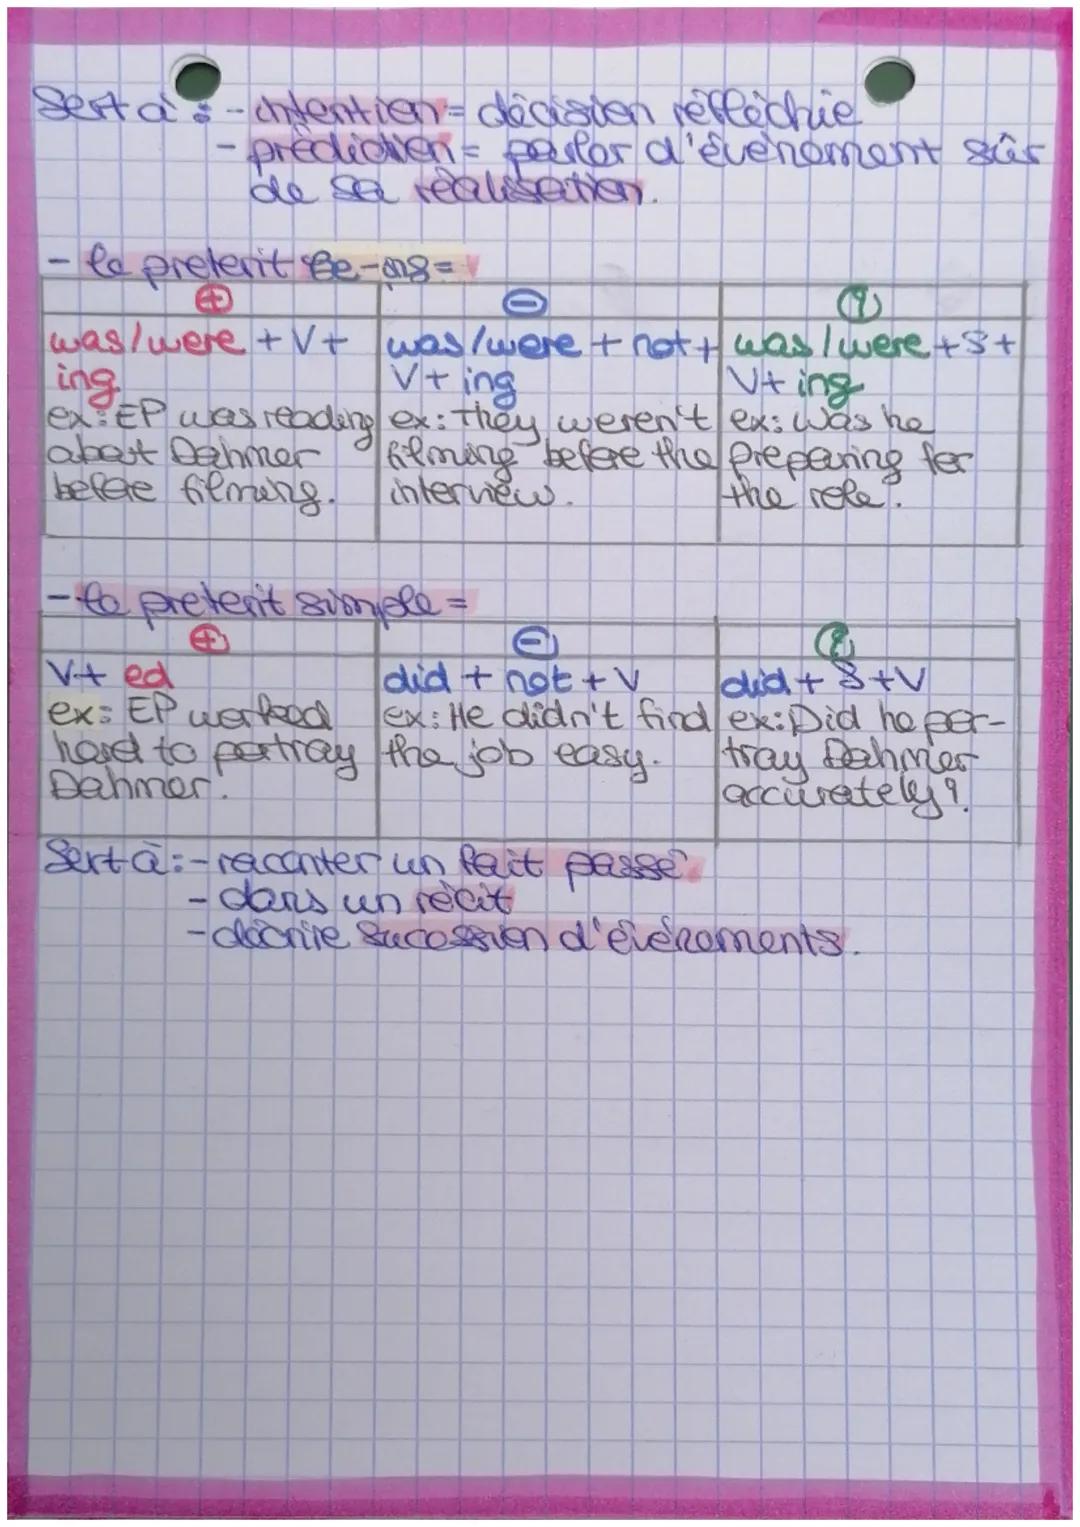 Sert à : - intention = décision réfléchie
- prédiction = parler d'évènement sûr
de sa réalisation.
- le preterit Be-ing =
+ - ?
was/were + V + was/were + not + was/were + S +
ing. V + ing V + ing
ex: EP was reading ex: they weren't ex: Was he
about Dahmer filming before the preparing for
before filming. interview. the role.
- le preterit simple =
+ - ?
V + ed did + not + V did + S + V
ex: EP worked ex: He didn't find ex: Did he por-
hard to portray the job easy. tray Dahmer
Dahmer. accurately?
Sert à : - raconter un fait passé
- dans un récit
- décrire sucession d'évènements.